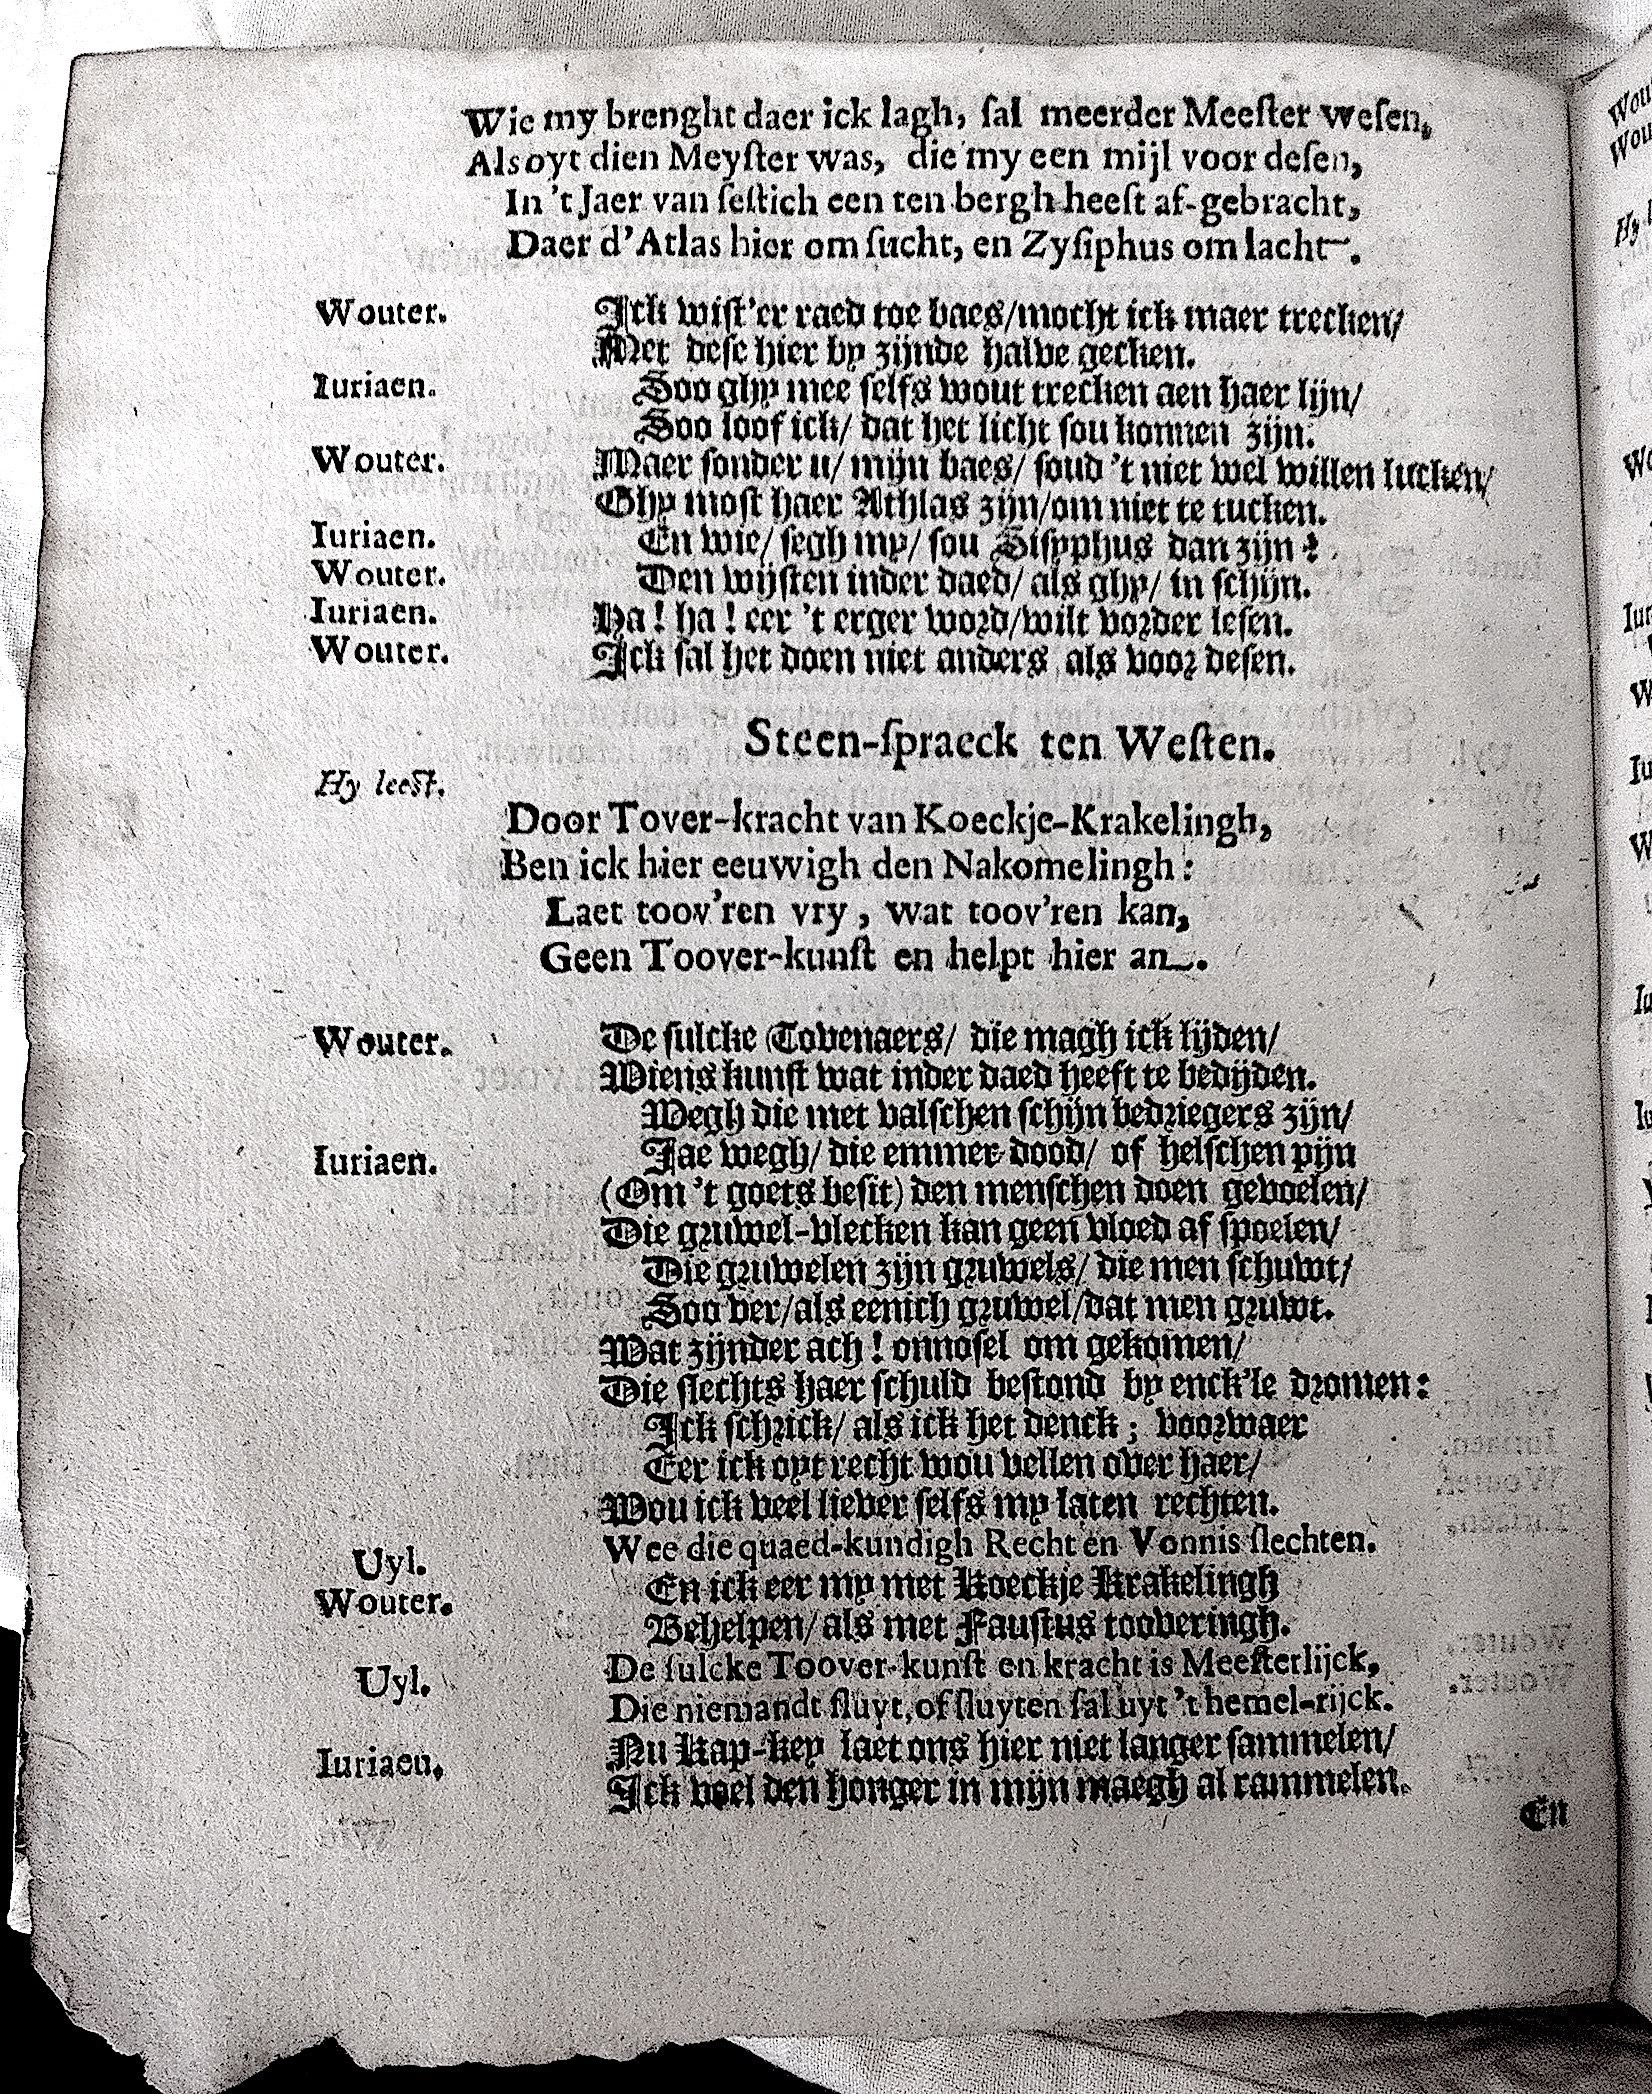 Wie my brenght daer ick lagh, ſal meerder Meeſter weſen,
Als oyt dien Meyſter was, die my een mijl voor deſen,
In 't Jaer van ſeſtich een ten bergh heeft af-gebracht,
Daer d'Atlas hier om ſucht, en Zyſiphus om lacht.
Wouter. Ick wiſt'er raed toe baes/mocht ick maer trecken/
Met deſe hier by zijnde halve gecken.
Iuriaen. Soo ghy mee ſelfs wout trecken aen haer lijn/
Soo loof ick/ dat het licht ſou konnen zijn.
Wouter. Maer ſonder u/ mijn baes/ ſoud 't niet wel willen lucken/
Ghy moſt haer Athlas zijn/om niet te tucken.
Iuriaen. En wie/ ſegh my/ ſou Siſyphus dan zijn?
Wouter. Den wijſten inder daed/ als ghy/ in ſchijn.
Iuriaen. Ha! ha! eer 't erger word/wilt vorder leſen.
Wouter. Ick ſal het doen niet anders als voor deſen.
Steen-ſpraeck ten Weſten.
Hy leeſt.
Door Tover-kracht van Koeckje-Krakelingh,
Ben ick hier eeuwigh den Nakomelingh:
Laet toov'ren vry, wat toov'ren kan,
Geen Toover-kunſt en helpt hier an.
Wouter. De ſulcke Tovenaers/ die magh ick lijden/
Wiens kunſt wat inder daed heeft te bedijden.
Wegh die met valſchen ſchijn bedriegers zijn/
Iuriaen. Jae wegh/ die emmer dood/ of helſchen pijn
(Om 't goets beſit) den menſchen doen gevoelen/
Die gruwel-vlecken kan geen vloed af ſpoelen/
Die gruwelen zijn gruwels/ die men ſchuwt/
Soo ver/als eenich gruwel/dat men gruwt.
Wat zijnder ach! onnoſel om gekomen/
Die ſlechts haer ſchuld beſtond by enck'le dromen:
Ick ſchrick/ als ick het denck; voorwaer
Eer ick oyt recht wou vellen over haer/
Wou ick veel liever ſelfs my laten rechten.
Uyl. Wee die quaed-kundigh Recht en Vonnis ſlechten.
Wouter. En ick eer my met Koeckje Krakelingh
Behelpen/ als met Fauſtus tooveringh.
Uyl. De ſulcke Toover-kunſt en kracht is Meeſterlijck,
Die niemandt ſluyt, of ſluyten ſal uyt 't hemel-rijck.
Iuriaen. Nu Kap-key laet ons hier niet langer ſammelen/
Ick voel den honger in mijn maegh al rammelen.
En